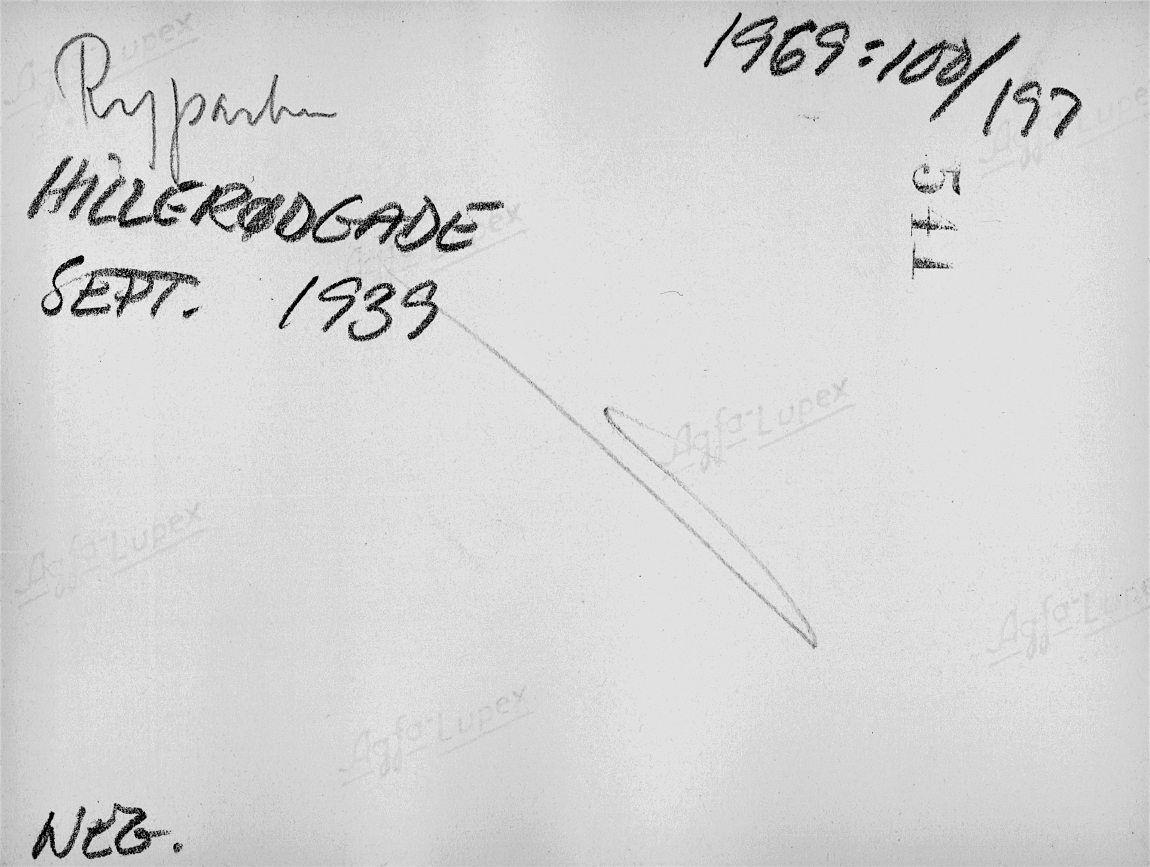 Ryparken
1969:100/197
HILLERØDGADE
SEPT. 1939
541
NEG.
Agfa-Lupex
Agfa-Lupex
Agfa-Lupex
Agfa-Lupex
Agfa-Lupex
Agfa-Lupex